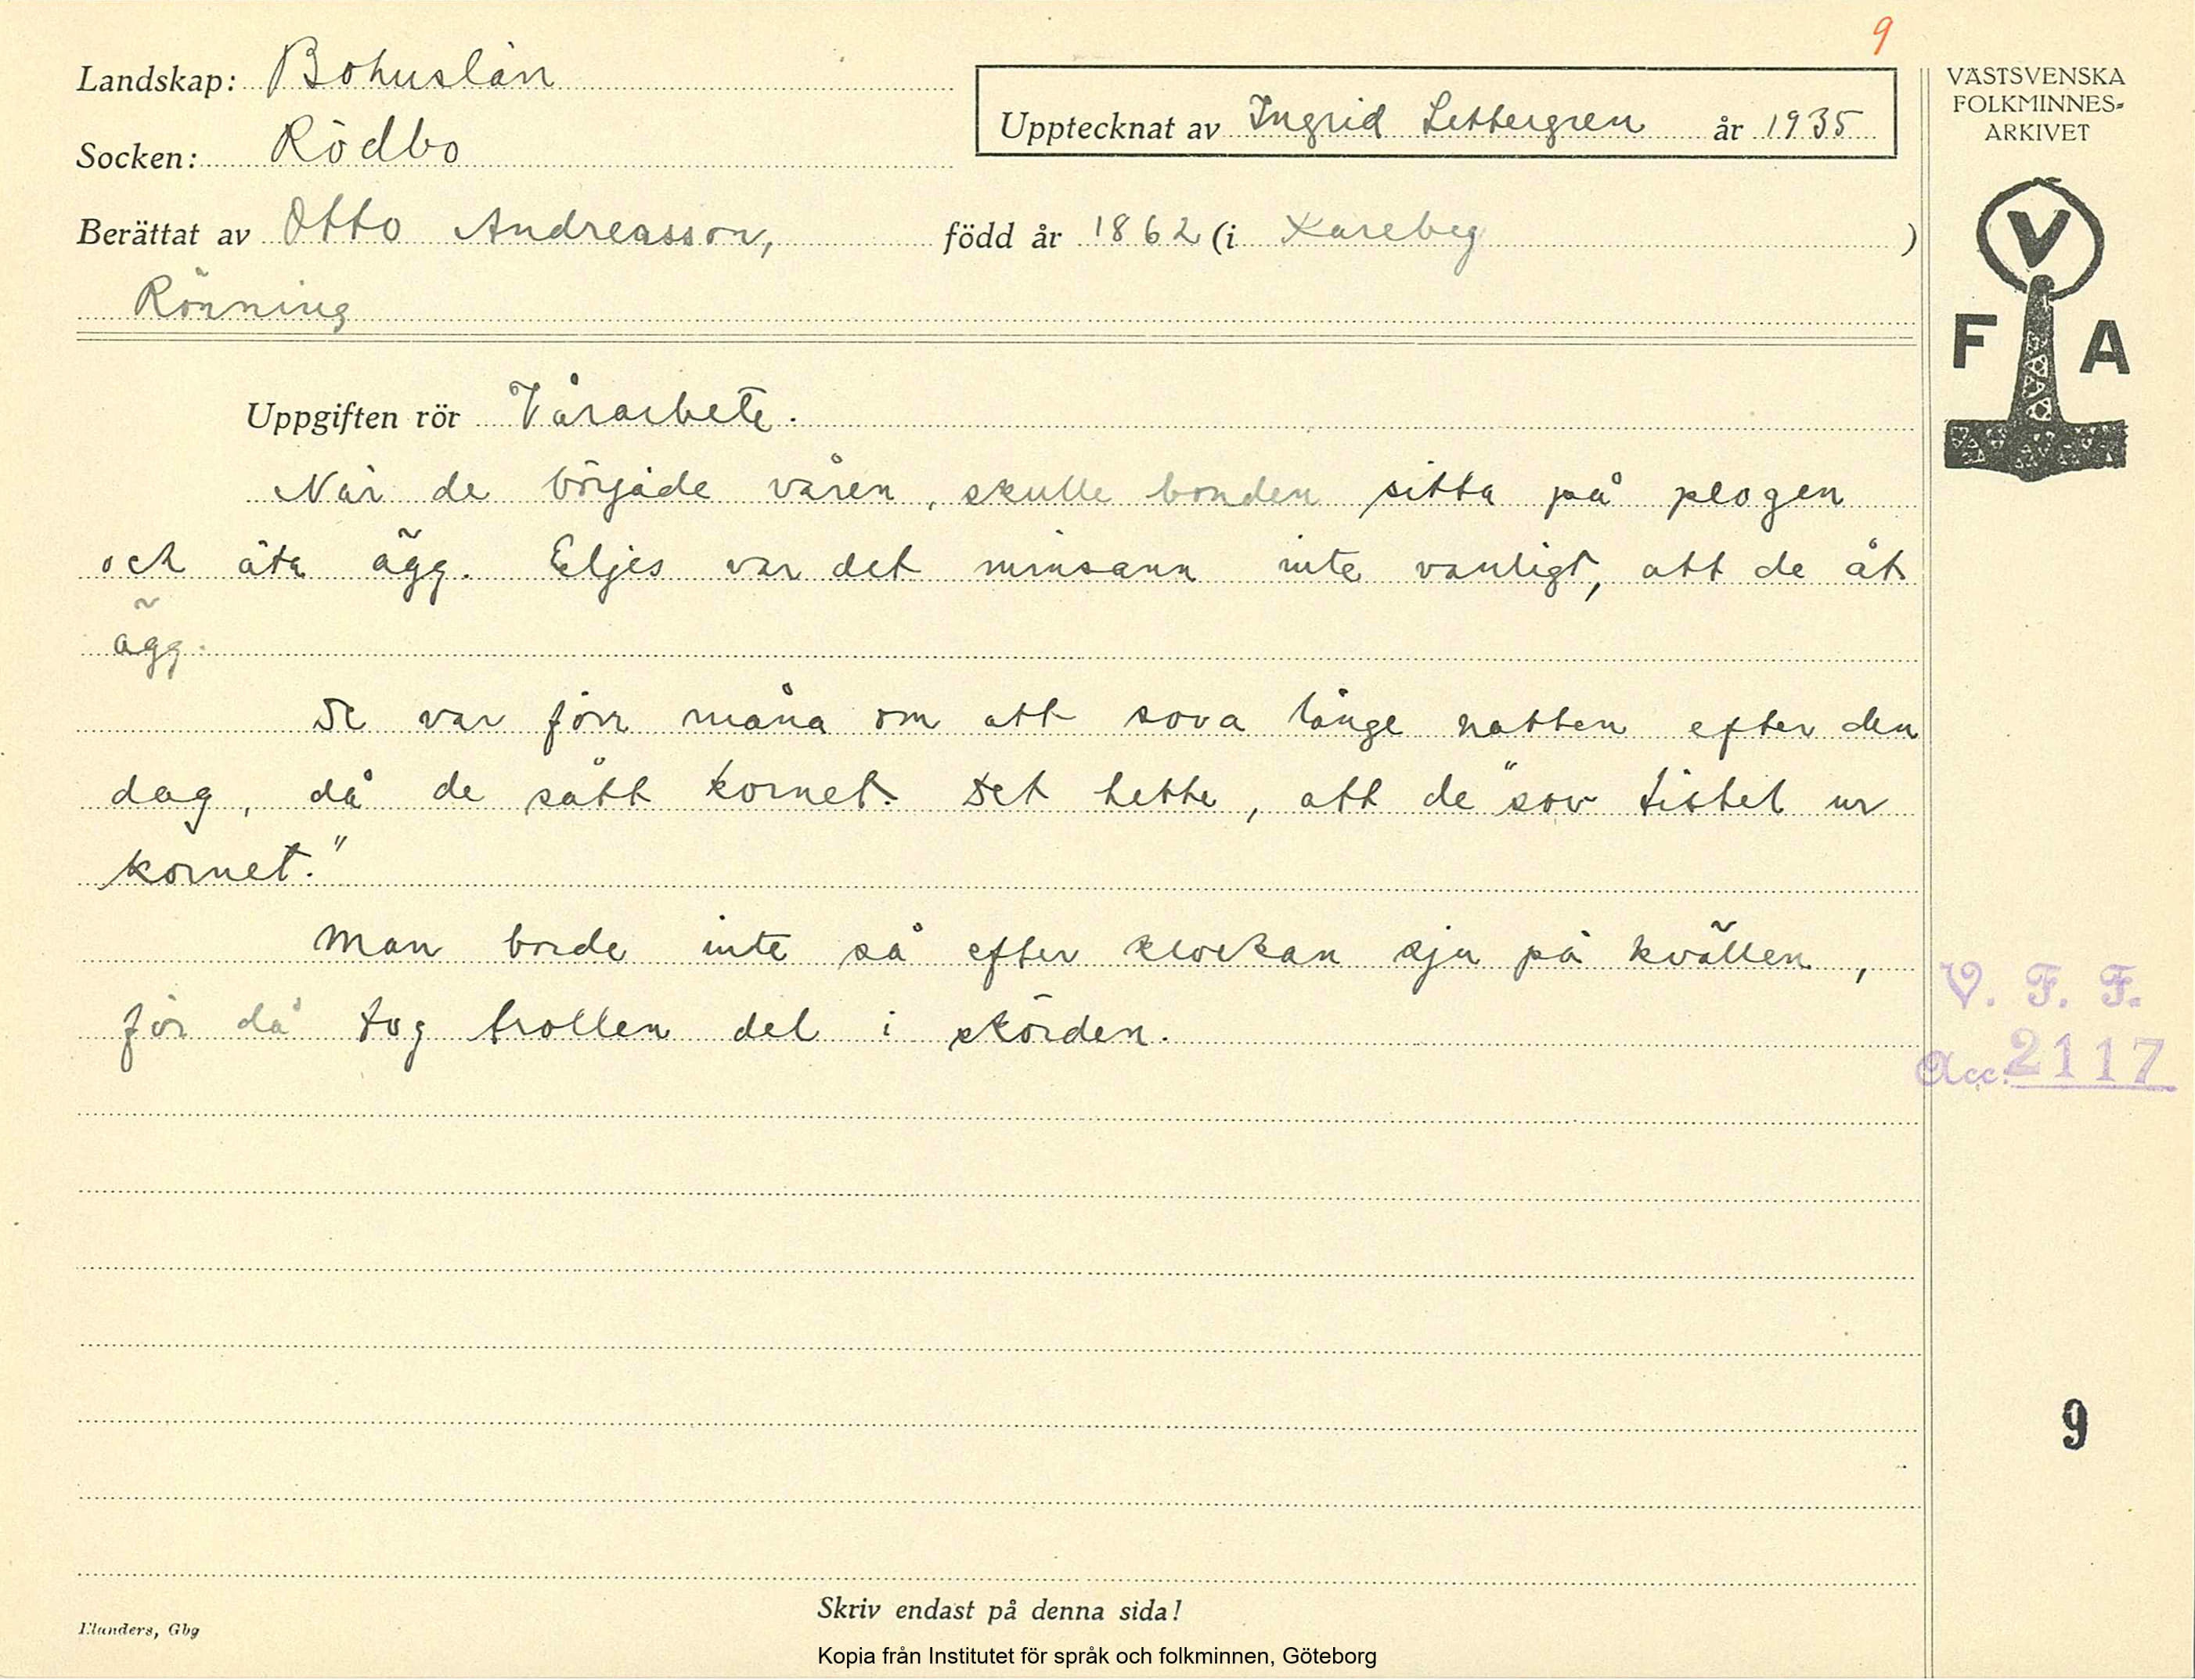 9
Landskap: Bohuslän
Socken: Rödbo
Upptecknat av Ingrid Settergren år 1935
Berättat av Otto Andreasson, född år 1862 (i Kareby)
Rönning
VÄSTSVENSKA
FOLKMINNES-
ARKIVET
V
F A
Uppgiften rör Vårarbete.
När de började våren, skulle bonden sitta på plogen
och äta ägg. Eljes var det minsann inte vanligt, att de åt
ägg.
De var förr måna om att sova länge natten efter den
dag, då de sått kornet. Det hette, att de "sov tistel ur
kornet."
Man borde inte så efter klockan sju på kvällen,
för då tog trollen del i skörden.
V. F. F.
Acc. 2117
9
Skriv endast på denna sida!
Elanders, Gbg
Kopia från Institutet för språk och folkminnen, Göteborg